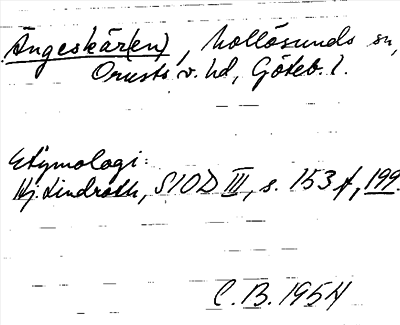 Ängeskär(en), Mollösunds sn,
Orusts v. hd, Göteb. l.
Etymologi:
Hj. Lindroth, SIOD III, s. 153 f, 199.
C.B. 1954